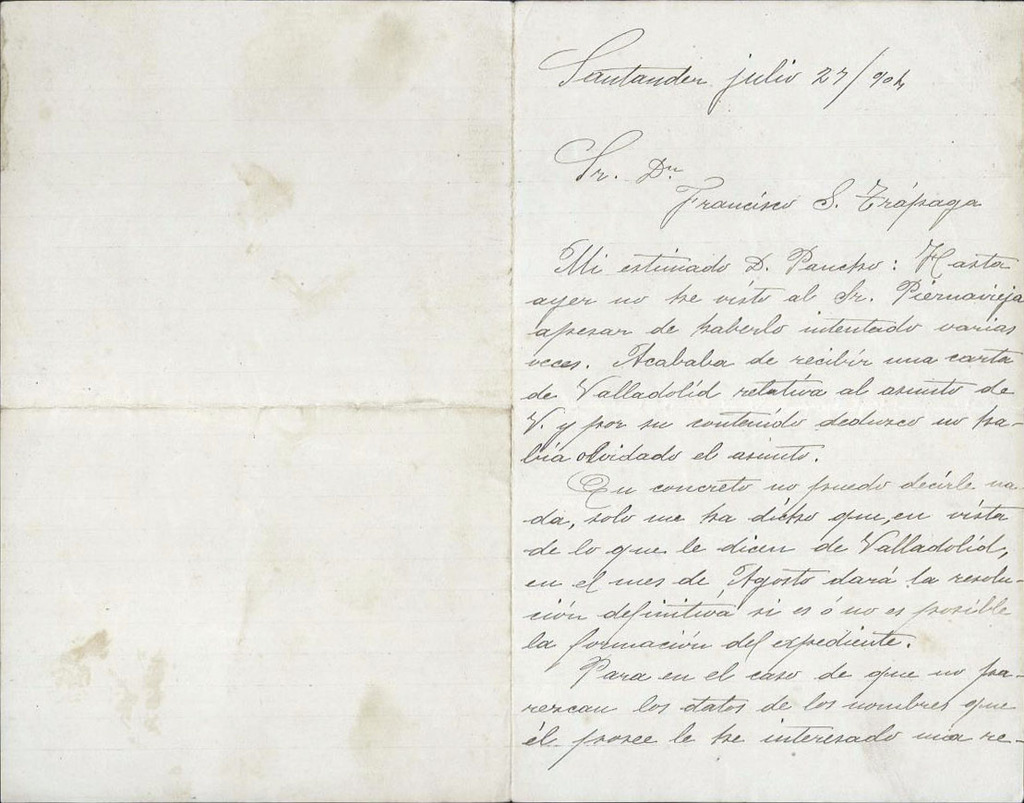 Santander julio 27/904
Sr. Dn
Francisco S. Trápaga
Mi estimado D. Pancho: Hasta
ayer no he visto al Sr. Piernavieja
apesar de haberlo intentado varias
veces. Acababa de recibir una carta
de Valladolid relativa al asunto de
V. y por su contenido deduzco no ha-
bia olvidado el asunto.
En concreto no puedo decirle na-
da, solo me ha dicho que, en vista
de lo que le dicen de Valladolid,
en el mes de Agosto dará la resolu-
ción definitiva si es ó no es posible
la formación del expediente.
Para en el caso de que no pa-
rezcan los datos de los nombres que
él posee le he interesado una re-